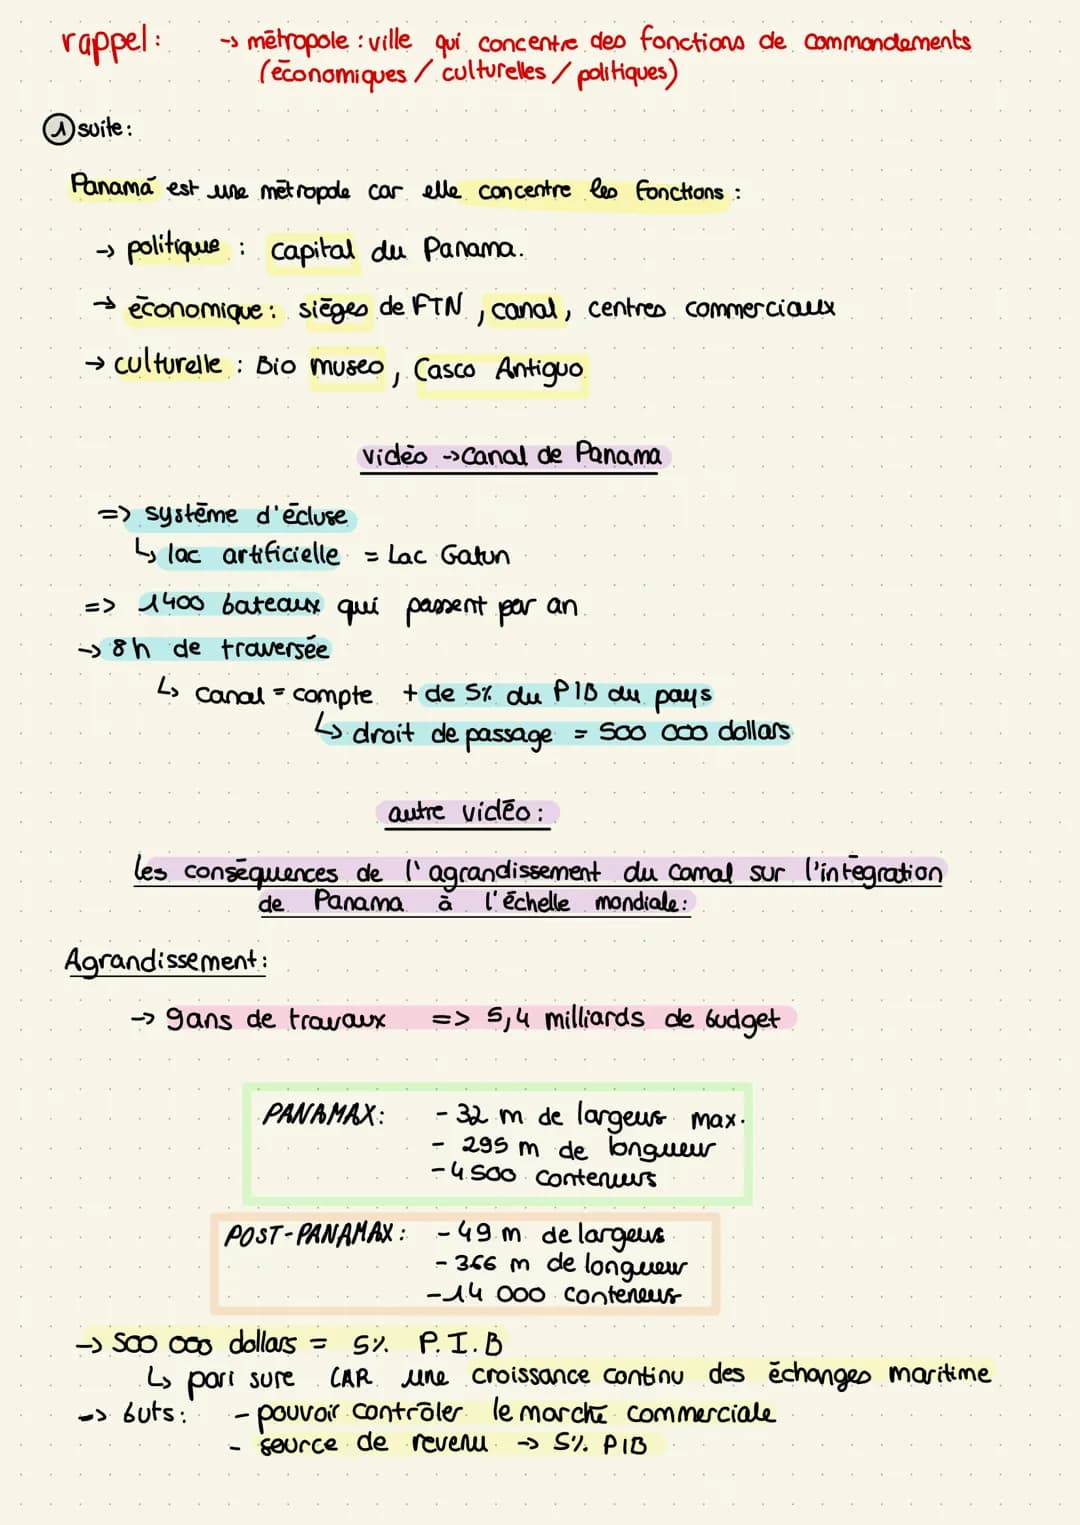 rappel: -> métropole : ville qui concentre des fonctions de commandements
(économiques / culturelles / politiques)
① suite :
Panamá est une métropole car elle concentre les fonctions :
→ politique : capital du Panama.
→ économique : sièges de FTN, canal, centres commerciaux
→ culturelle : Bio museo, Casco Antiguo
vidéo -> Canal de Panama
=> système d'écluse
↳ lac artificielle = Lac Gatun
=> 1400 bateaux qui passent par an
-> 8h de traversée
↳ canal = compte + de 5% du PIB du pays
↳ droit de passage = 500 000 dollars
autre vidéo :
Les conséquences de l'agrandissement du Camal sur l'intégration
de Panama à l'échelle mondiale:
Agrandissement :
-> 9ans de travaux => 5,4 milliards de budget
PANAMAX: - 32 m de largeur max.
- 295 m de longueur
- 4500 conteneurs
POST-PANAMAX : - 49 m de largeur
- 366 m de longueur
- 14 000 conteneurs
-> 500 000 dollars = 5% P.I.B
↳ pari sure CAR une croissance continu des échanges maritime
-> buts : - pouvoir contrôler le marché commerciale
- source de revenu -> 5% PIB